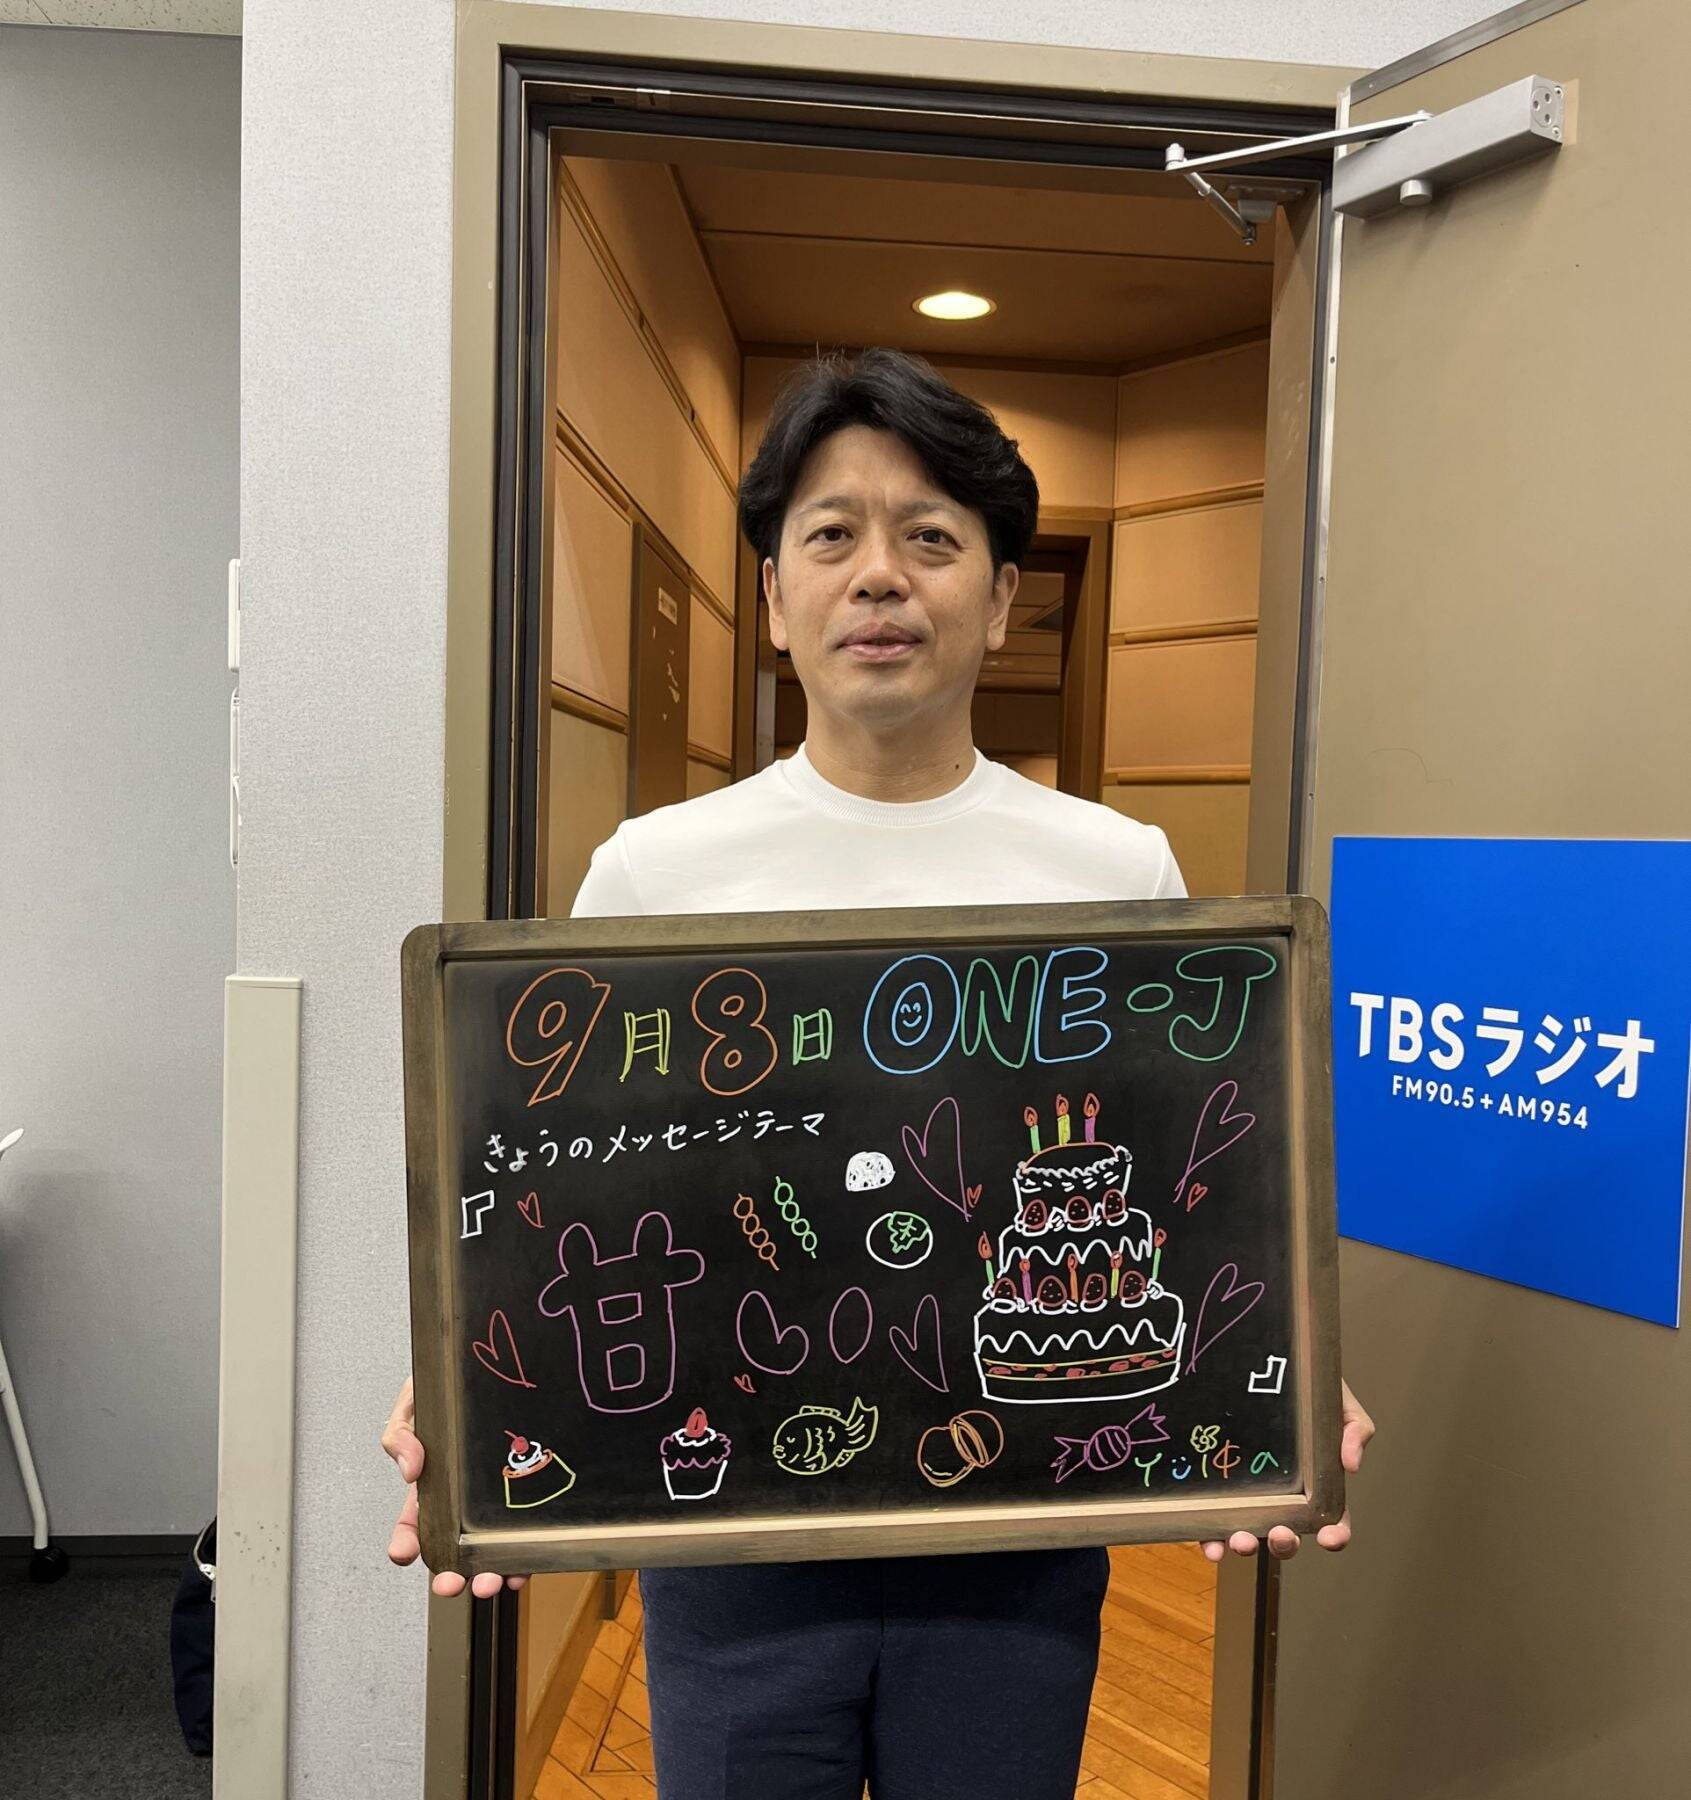 9月8日 ONE-J
きょうのメッセージテーマ
『甘い』
Yuika.
TBSラジオ
FM90.5+AM954